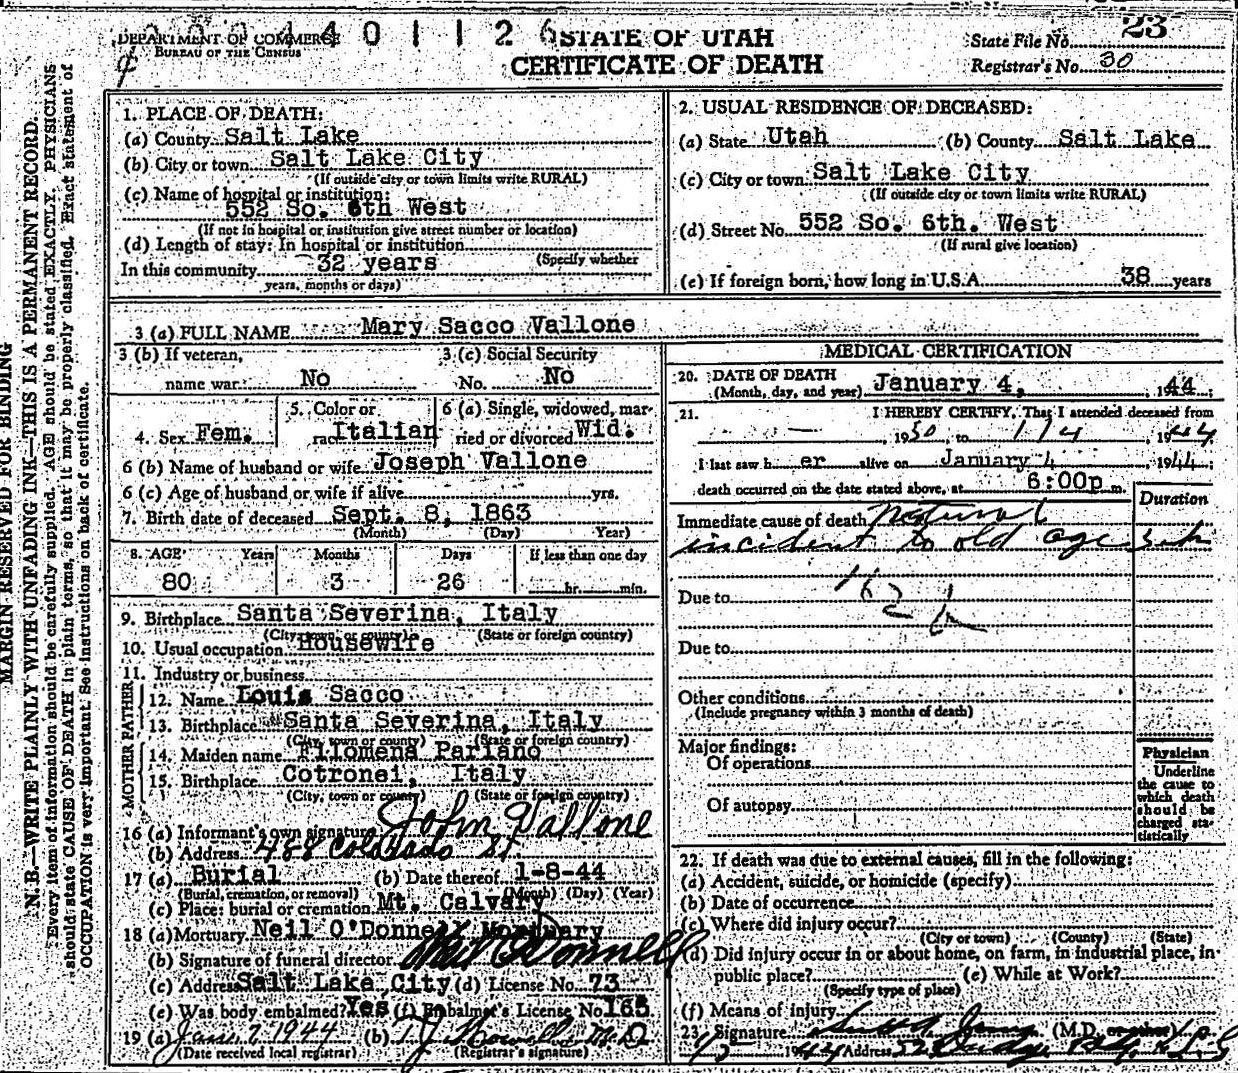 DEPARTMENT OF COMMERCE
BUREAU OF THE CENSUS
4 4 0 1 1 2 6
STATE OF UTAH
CERTIFICATE OF DEATH
State File No. 23
Registrar's No. 30
MARGIN RESERVED FOR BINDING
N. B.—WRITE PLAINLY WITH UNFADING INK—THIS IS A PERMANENT RECORD.
Every item of information should be carefully supplied. AGE should be stated EXACTLY. PHYSICIANS
should state CAUSE OF DEATH in plain terms, so that it may be properly classified. Exact statement of
OCCUPATION is very important. See instructions on back of certificate.
1. PLACE OF DEATH:
(a) County Salt Lake
(b) City or town Salt Lake City
(If outside city or town limits write RURAL)
(c) Name of hospital or institution:
552 So. 6th West
(If not in hospital or institution give street number or location)
(d) Length of stay: In hospital or institution
(Specify whether
In this community 32 years
years, months or days)
2. USUAL RESIDENCE OF DECEASED:
(a) State Utah (b) County Salt Lake
(c) City or town Salt Lake City
(If outside city or town limits write RURAL)
(d) Street No. 552 So. 6th. West
(If rural give location)
(e) If foreign born, how long in U.S.A. 38 years
3 (a) FULL NAME Mary Sacco Vallone
3 (b) If veteran,
name war No
3 (c) Social Security
No. No
4. Sex Fem.
5. Color or
race Italian
6 (a) Single, widowed, mar-
ried or divorced Wid.
6 (b) Name of husband or wife Joseph Vallone
6 (c) Age of husband or wife if alive yrs.
7. Birth date of deceased Sept. 8, 1863
(Month) (Day) Year)
8. AGE Years Months Days If less than one day
80 3 26 hr. min.
9. Birthplace Santa Severina, Italy
(City, town or county) (State or foreign country)
10. Usual occupation Housewife
11. Industry or business
FATHER
12. Name Louis Sacco
13. Birthplace Santa Severina, Italy
(City, town or county) (State or foreign country)
MOTHER
14. Maiden name Filomena Pariano
15. Birthplace Cotronei, Italy
(City, town or county) (State or foreign country)
16 (a) Informant's own signature John Vallone
(b) Address 488 Colorado St
17 (a) Burial (b) Date thereof 1-8-44
(Burial, cremation, or removal) (Month) (Day) (Year)
(c) Place: burial or cremation Mt. Calvary
18 (a) Mortuary Neil O'Donnell Mortuary
(b) Signature of funeral director Neil O'Donnell
(c) Address Salt Lake City (d) License No. 73
(e) Was body embalmed? Yes (f) Embalmer's License No 165
19 (a) Jan 7 1944 (b) M.D.
(Date received local registrar) (Registrar's signature)
MEDICAL CERTIFICATION
20. DATE OF DEATH
(Month, day, and year) January 4, 1944;
21. I HEREBY CERTIFY, That I attended deceased from
1930, to 1/4, 1944
I last saw her alive on January 4, 1944;
death occurred on the date stated above, at 6:00p m.
Duration
Immediate cause of death Natural
incident to old age
Due to 162 b
Due to
Other conditions
(Include pregnancy within 3 months of death)
Major findings:
Of operations
Of autopsy
Physician
Underline
the cause to
which death
should be
charged sta-
tistically
22. If death was due to external causes, fill in the following:
(a) Accident, suicide, or homicide (specify)
(b) Date of occurrence
(c) Where did injury occur?
(City or town) (County) (State)
(d) Did injury occur in or about home, on farm, in industrial place, in
public place? (e) While at Work?
(Specify type of place)
(f) Means of injury
23. Signature (M.D. or other)
1944 Address